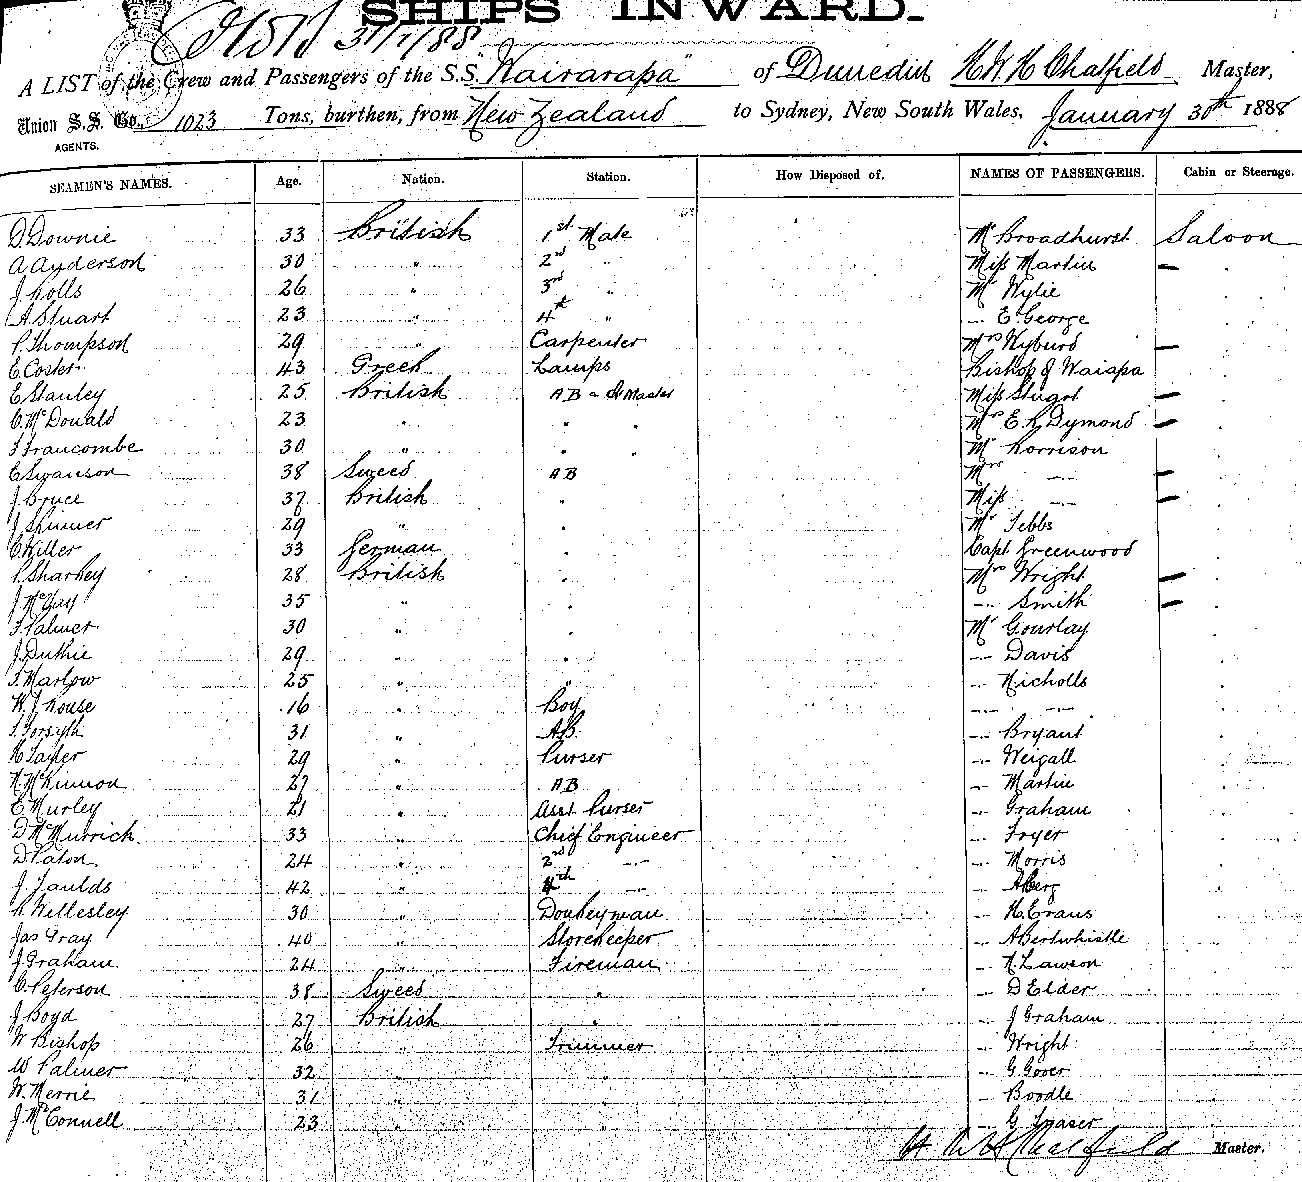 SHIPS INWARD.
31/1/88
A LIST of the Crew and Passengers of the S.S. "Wairarapa" of Dunedin H W H Chatfield Master,
Union S. S. Co., 1023 Tons, burthen, from New Zealand to Sydney, New South Wales, January 30th 1888
AGENTS.
SEAMEN'S NAMES. Age. Nation. Station. How Disposed of. NAMES OF PASSENGERS. Cabin or Steerage.
D Downie 33 British 1st Mate Mr Broadhurst Saloon
A Anderson 30 " 2nd " Miss Martin —
J Lolls 26 " 3rd " Mr Wylie
A Stuart 23 " 4th " — E. George
P Thompson 29 " Carpenter Mrs Wyburd —
E Coster 43 Greek Lamps Bishop of Waiapu
E Stanley 25 British AB & Master Miss —
C. McDonald 23 " " " Mrs E. L Dymond —
Francombe 30 " " " Mr Lorrison
E Swanson 38 Sweed AB Mrs — —
J Bruce 37 British " Miss — —
J Skinner 29 " " Mr Tebbs
C Witter 33 German " Capt Greenwood
P Sharkey 28 British " Mrs Wright —
J McGay 35 " " — Smith —
F. Palmer 30 " " Mr Gourlay
J. Duthie 29 " " — Davis
F. Marlow 25 " " — Nicholls
W. J. Louse 16 " Boy — —
Forsyth 31 " A.B. — Bryant
H Tayler 29 " Purser — Weigall
McKinnon 27 " AB — Martin
E Murley 21 " Asst Purser — Graham
D McMurrich 33 " Chief Engineer — Fryer
D Paton 24 " 2nd — — Morris
J. Faulds 42 " 4th — — Aberg
Wellesley 30 " Donkeyman — H. Evans
Jas Gray 40 " Storekeeper — A Bertwhistle
J. Graham 24 " Fireman — Lawson
C. Peterson 38 Sweed " — D Elder
J Boyd 27 British " — J Graham
W Bishop 26 " Trimmer — Wright
W Palmer 32 " " — G. Gover
W. Merrie 31 " " — Boodle
J. McConnell 23 " " — G Fraser
H W H Chatfield Master.